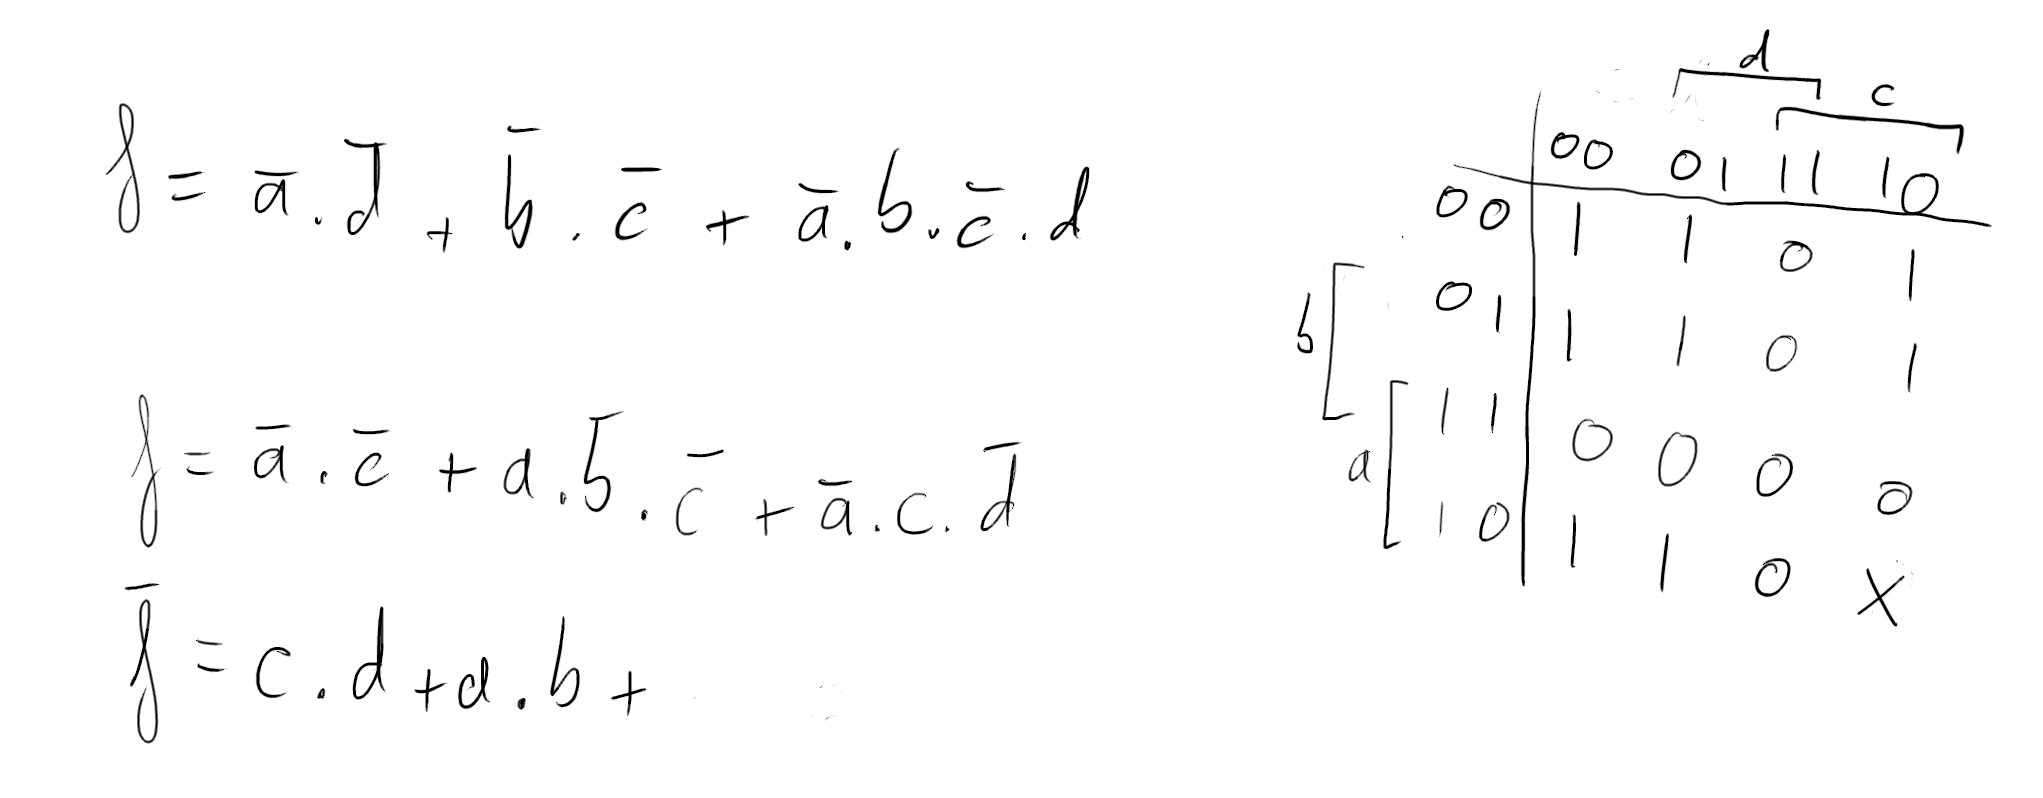 f = a̅.d̅ + b̅.c̅ + a̅.b.c̅.d
f = a̅.c̅ + a.b̅.c̅ + a̅.c.d̅
f̅ = c.d + a.b +
d
c
00 01 11 10
00 1 1 0 1
b 01 1 1 0 1
a 11 0 0 0 0
10 1 1 0 X